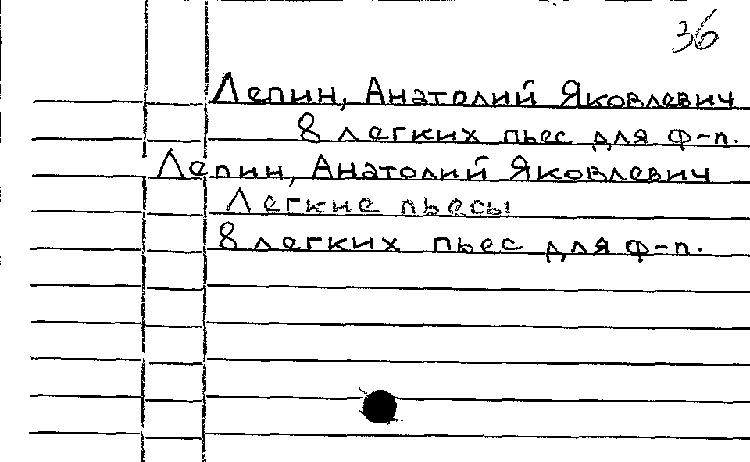 36
Лепин, Анатолий Яковлевич
8 легких пьес для ф-п.
Лепин, Анатолий Яковлевич
Легкие пьесы
8 легких пьес для ф-п.